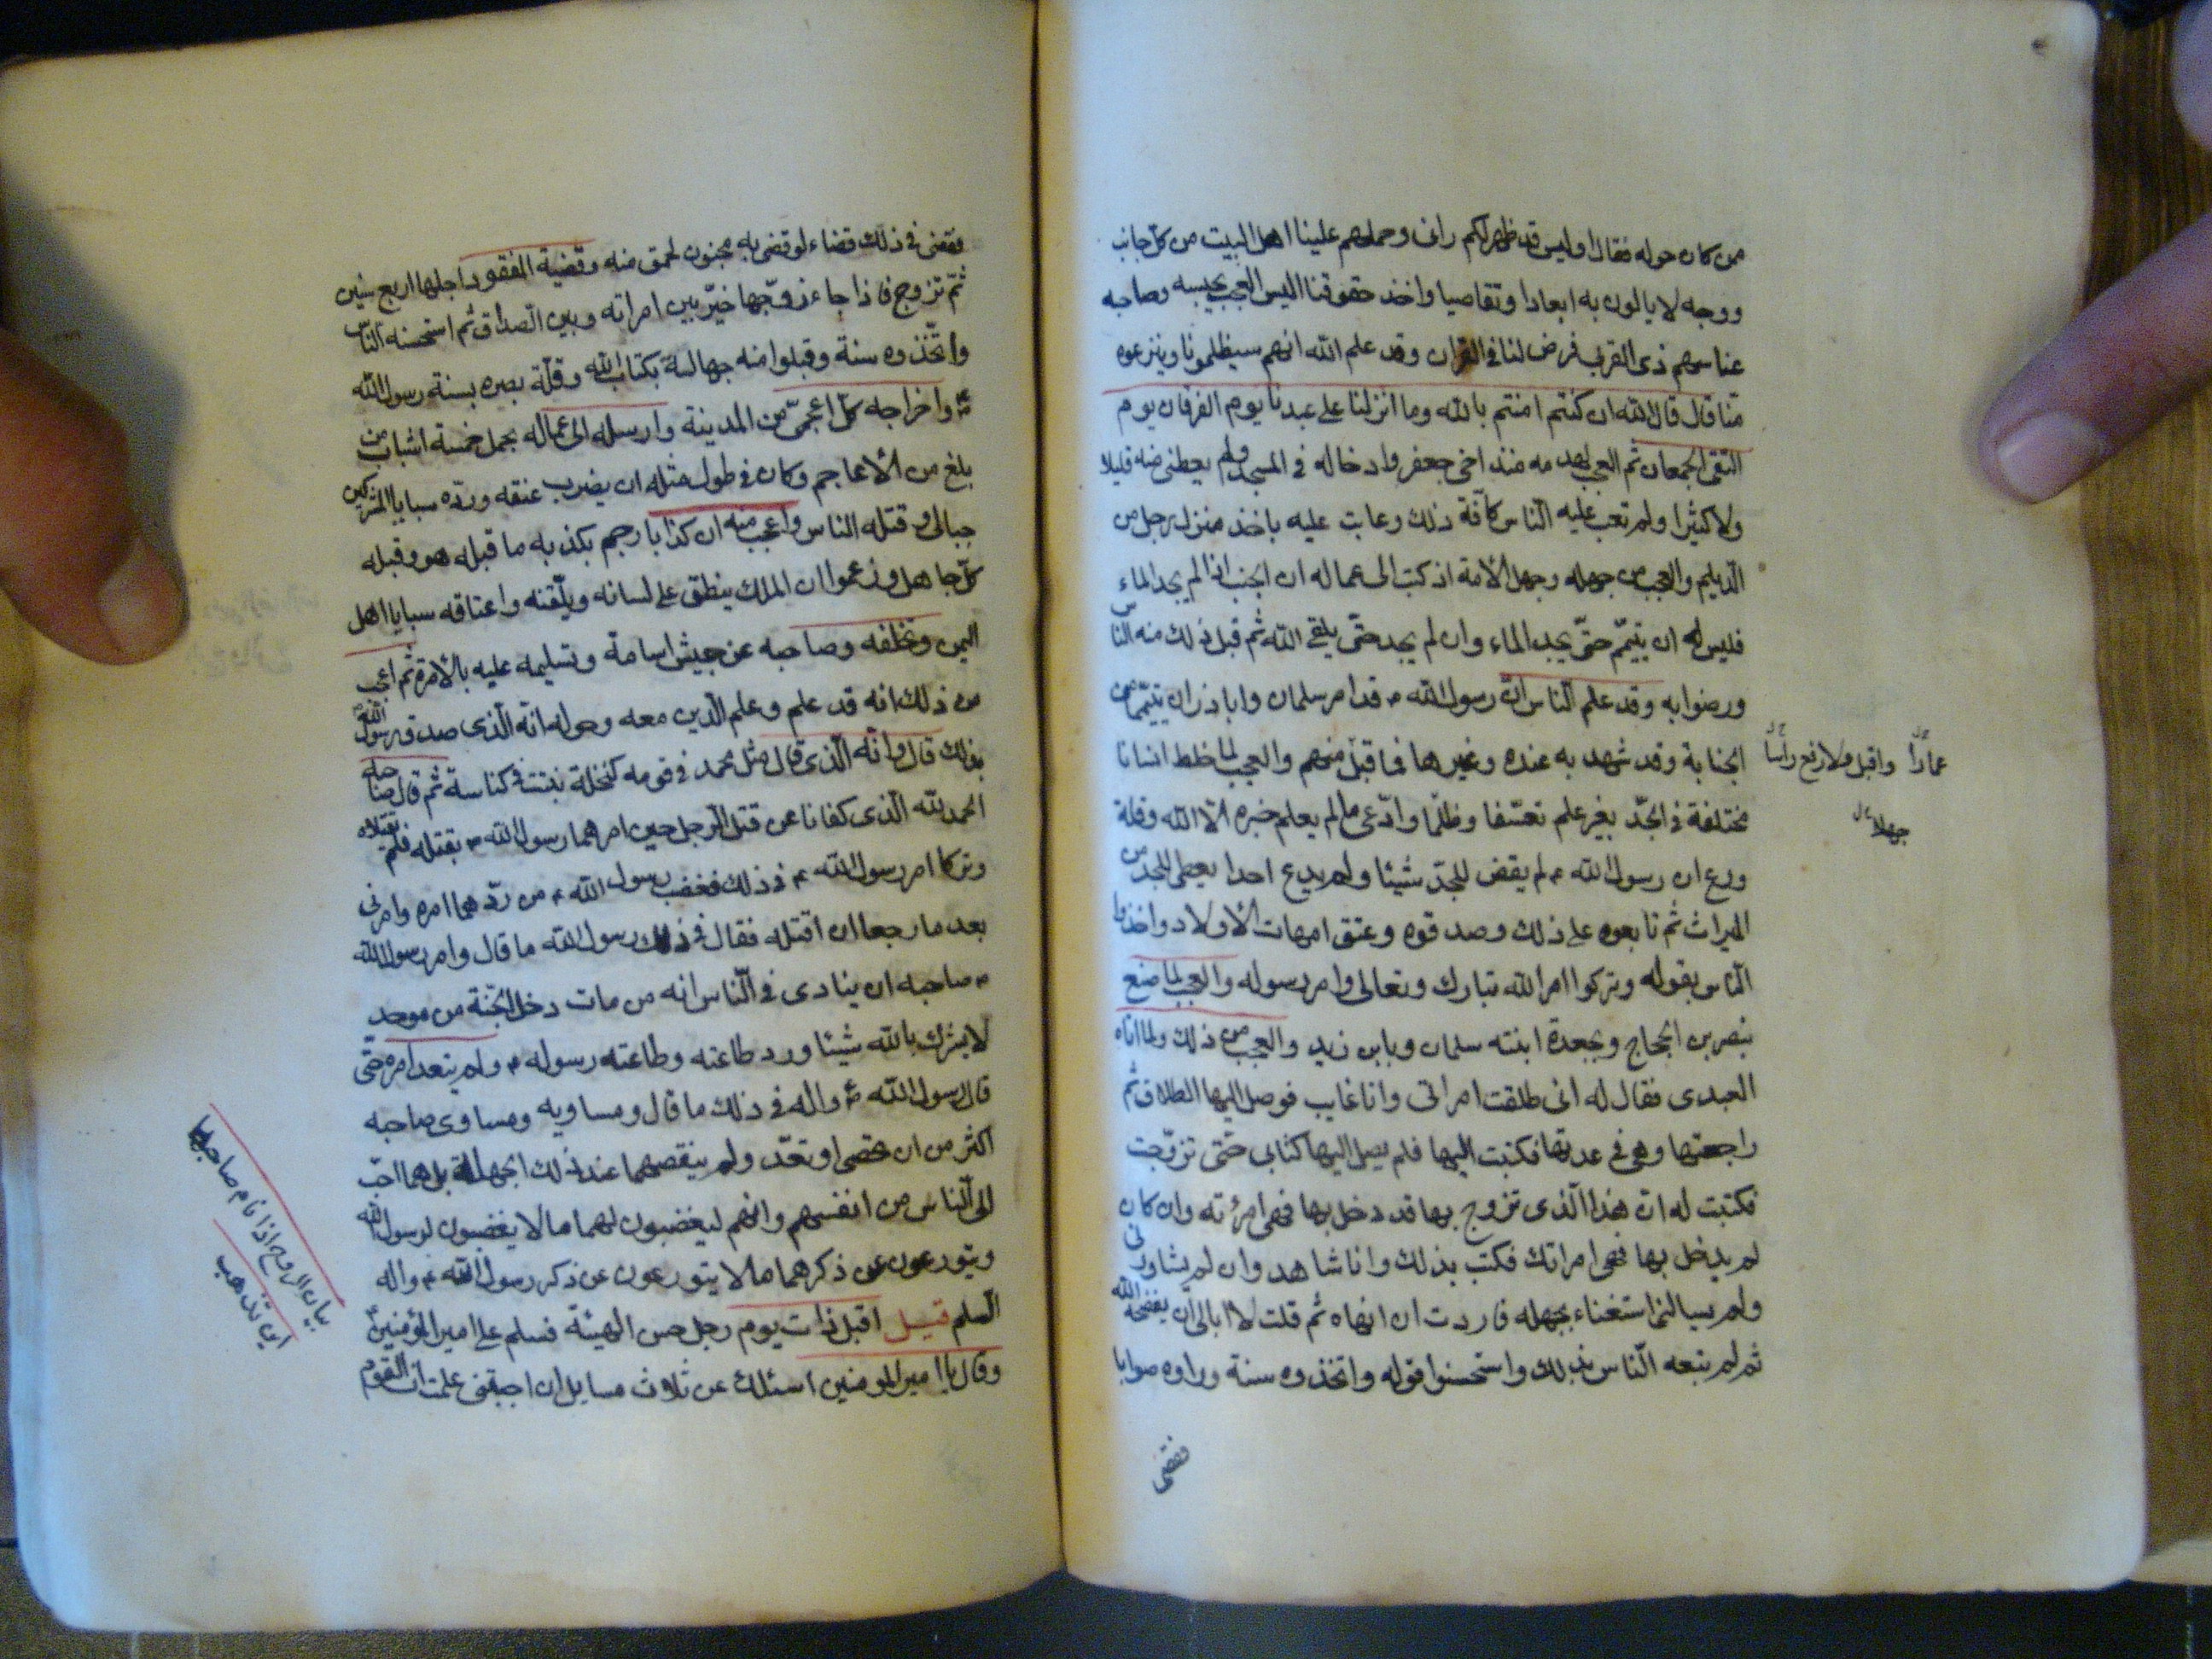 من كان حوله فقال اوليس قد ظهر لكم رائى وحملهم علينا اهل البيت من كل جانب
ووجه لا يالون به ابعادا وتقاصيا واخذ حقوقنا اليس العجب بحبسه وصاحبه
عنا سهم ذى القربى فرض لنا فى القران وقد علم الله انهم سيظلمونا وينزعوه
منا قال قال الله ان كنتم امنتم بالله وما انزلنا على عبدنا يوم الفرقان يوم
التقى الجمعان ثم العجب لهدمه منزل اخى جعفر وادخاله فى المسجد ولم يعطنى منه قليلا
ولا كثيرا ولم تعب عليه الناس كافة ذلك وعابت عليه باخذ منزل رجل من
الديلم والعجب من جهله وجهل الامة اذ كتب الى عماله ان الجنب اذا لم يجد الماء
فليس له ان يتيمم حتى يجد الماء وان لم يجد حتى يلقى الله ثم قبل ذلك منه الناس
ورضوا به وقد علم الناس ان رسول الله ص قد امر سلمان وابا ذر ان يتيمما من
الجنابة وقد شهد به عنده وغيرها فما قبل منهم والعجب لما خلط اشانا
مختلفة فى الجد بغير علم تعسفا وظلما وادعى ما لم يعلم خبره الا الله وقلة
ورع ان رسول الله ص لم يقض للجد شيئا ولم يدع احدا يعطى للجد من
الميراث ثم تابعوه على ذلك وصدقوه وعتق امهات الاولاد واخذوا
الناس بقوله وتركوا امر الله تبارك وتعالى وامر رسوله والعجب لما صنع
بنصر بن الحجاج وبجعدة ابنته سلمان وبابن زيد والعجب من ذلك ولما اتاه
العبدى فقال له انى طلقت امراتى وانا غايب فوصل اليها الطلاق ثم
راجعتها وهى فى عدتها فكتبت اليها فلم يصل اليها كتابى حتى تزوجت
فكتبت له ان هذا الذى تزوج بها قد دخل بها فهى امرئته وان كان
لم يدخل بها فهى امراتك فكتب بذلك وانا شاهد وان لم يشاورنى
ولم يسالنى استغناء بجهله فاردت ان انهاه ثم قلت لا ابالى ان يفضحه الله
ثم لم يتبعه الناس بذلك واستحسنوا قوله واتخذوه سنة وراوه صوابا
فقضى
عمارا واقبل ولا رفع راسا
جهلاء ل
فقضى فى ذلك قضاء لو قضى به مجنون لحمق منه وقضية المفقود اجلها اربع سنين
ثم تزوج فاذا جاء زوجها خير بين امراته وبين الصداق ثم استحسنه الناس
واتخذوه سنة وقبلوا منه جهالة بكتاب الله وقلة بصره بسنة رسول الله
ص واخراجه كل اعجمى من المدينة وارسله الى عماله بحمل خمسة اشبار من
بلغ من الاعاجم وكان فى طول مثله ان يضرب عنقه ورده سبايا المشركين
حبالى وقتله الناس واعجب منه ان كذابا رجم بكذبه ما قبله هو وقبله
كل جاهل وزعموا ان الملك ينطق على لسانه ويلقنه واعتاقه سبايا اهل
اليمن وتخلفه وصاحبه عن جيش اسامة وتسليمه عليه بالامرة ثم اعجب
من ذلك انه قد علم وعلم الذين معه وحوله انه الذى صد رسول الله
بذلك قال وانه الذى قال مثل محمد فى قومه كنخلة نبتت فى كناسة ثم قال صاحبه
الحمد لله الذى كفانا عن قتل الرجل حين امرهما رسول الله ص بقتله فلم يقتلاه
وتركا امر رسول الله ص فى ذلك فغضب رسول الله ص من ردهما امره وامرنى
بعد ما رجعا ان اقتله فقال فى ذلك رسول الله ما قال وامر رسول الله
ص صاحبه ان ينادى فى الناس انه من مات دخل الجنة من موحد
لا يشرك بالله شيئا ورد طاعته وطاعته رسوله ص ولم يتعد امره حتى
قال رسول الله ص واله فى ذلك ما قال ومساويه ومساوى صاحبه
اكثر من ان تحصى او تعد ولم ينقصهما عند ذلك الجهلة بل هما احب
الى الناس من انفسهم وانهم ليغضبون لهما ما لا يغضبون لرسول الله
ويتورعون عن ذكرهما ما لا يتورعون عن ذكر رسول الله ص واله
السلم قيل اقبل ذات يوم رجل حسن الهيئة فسلم على امير المؤمنين
وقال يا امير المومنين اسئلك عن ثلاث مسايل ان اجبتنى علمت ان القوم
بيان الروح اذا نام صاحبها
اين تذهب